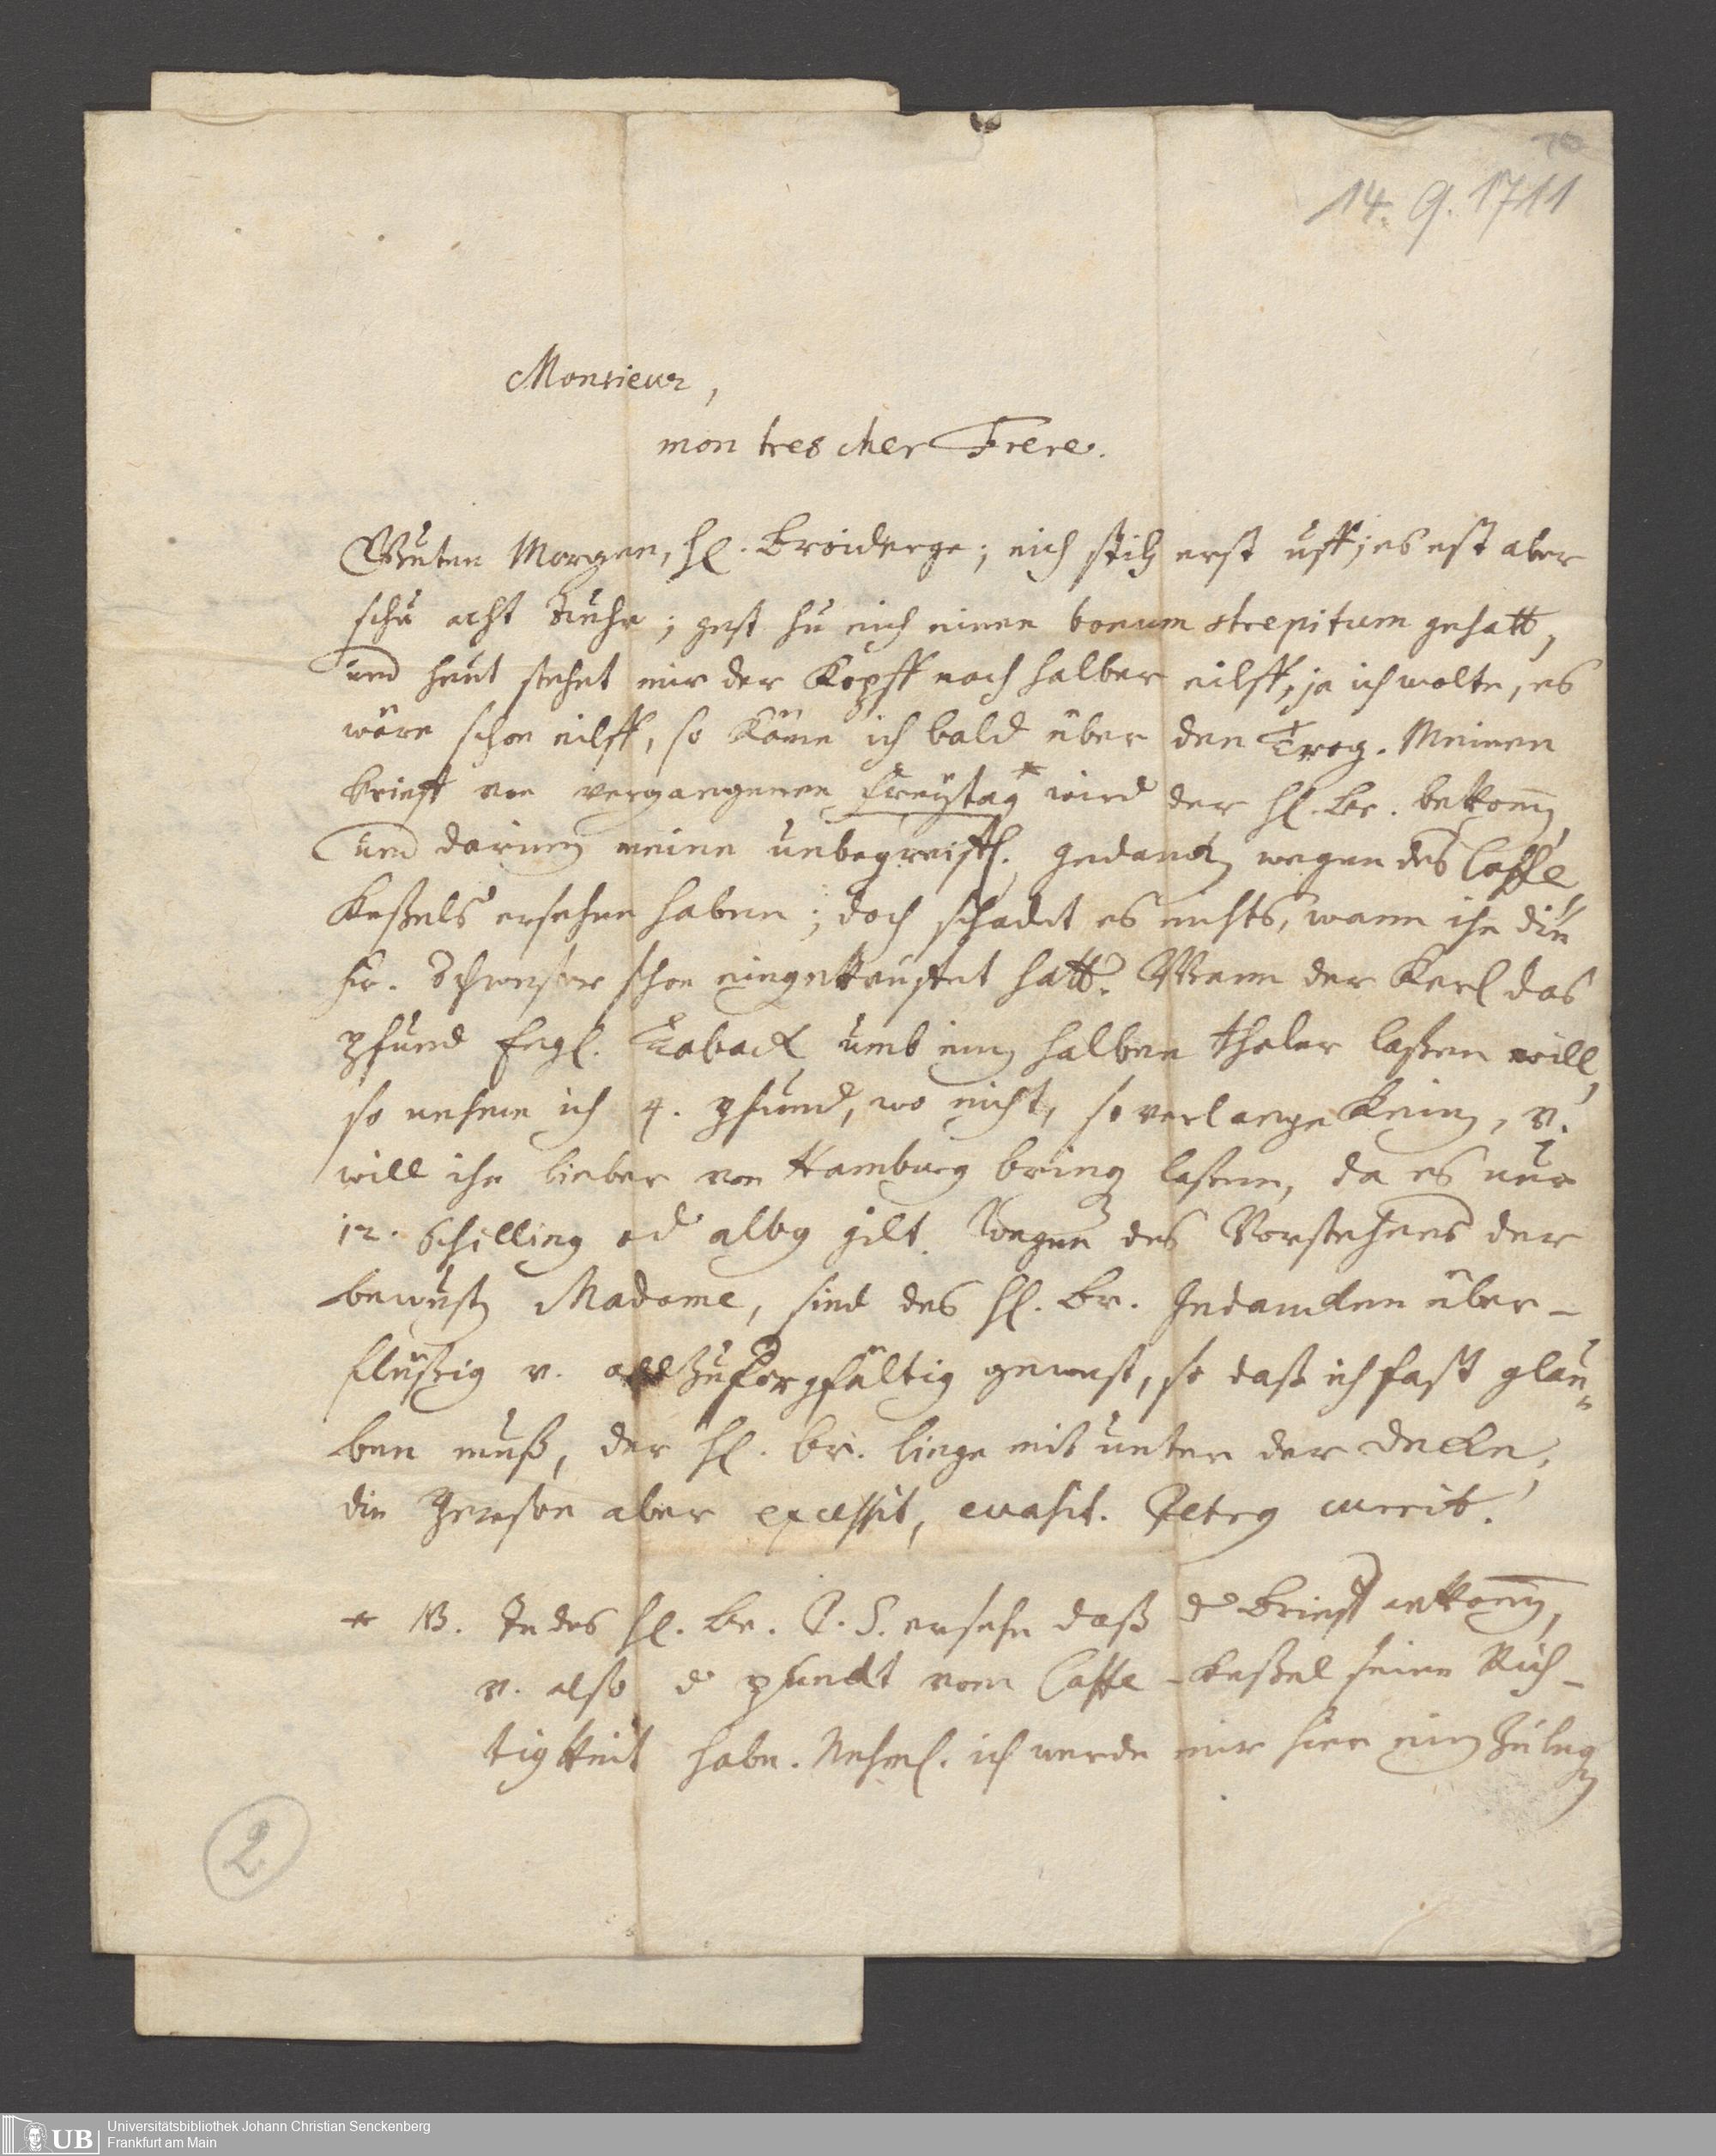 14. 9. 1711
Monsieur,
mon tres cher Frere.
Guten Morgen, H. Broiderge; eich steh erst uff; es est aber
schu acht Auhr; gest hu eich einen bonum strepitum gehatt,
und heut stehet mir der Kopff nach halber eilff, ja ich wolte, es
wäre schon eilff, so käme ich bald über den Trog. Meinen
brieff von vergangenen Freÿtag * wird der H. Br. bekom̄en
und darinen meine unbegreiffl. gedancken wegen des Caffe
Keßels ersehen haben; doch schadet es nichts, wann ihn die
Fr. Schwester schon eingekauffet hatt. Wann der Kerl das
pfund Engl. Taback umb einen halben thaler laßen will,
so nehme ich 4. pfund, wo nicht, so verlange keinen, v.
will ihn lieber von Hamburg bringen laßen, da es nur
12. Schilling od albg gilt. Wegen des Vorstehens der
bewusten Madame, sind des H. Br. Gedancken über-
flüßig v. allzusorgfältig gewest, so daß ich fast glau-
ben muß, der H. Br. liege mit unter der Decke,
die Person aber excessit, euasit.
* NB. In des H. Br. P. S. ersehe daß d Brieff ankom̄en,
v. also d punckt vom Caffe-Keßel seine Rich-
tigkeit habe. Nehml. ich werde mir hier einen zulegen
2
UB Universitätsbibliothek Johann Christian Senckenberg
Frankfurt am Main